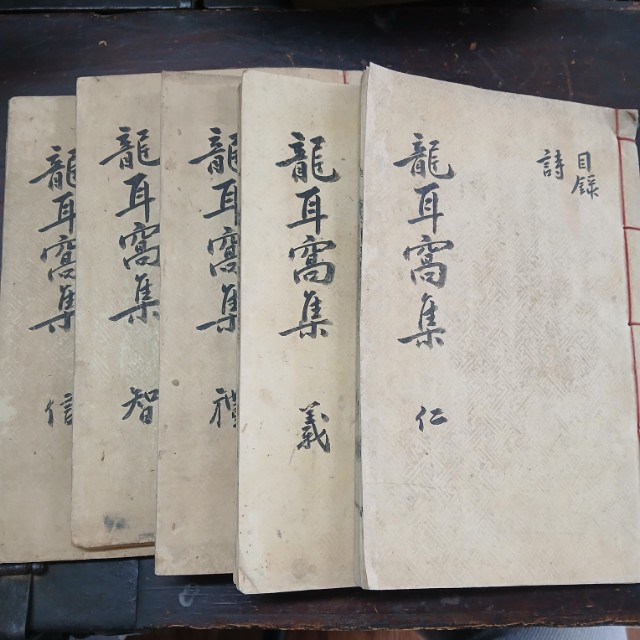 目錄
詩
龍耳窩集 仁
龍耳窩集 義
龍耳窩集 禮
龍耳窩集 智
龍耳窩集 信